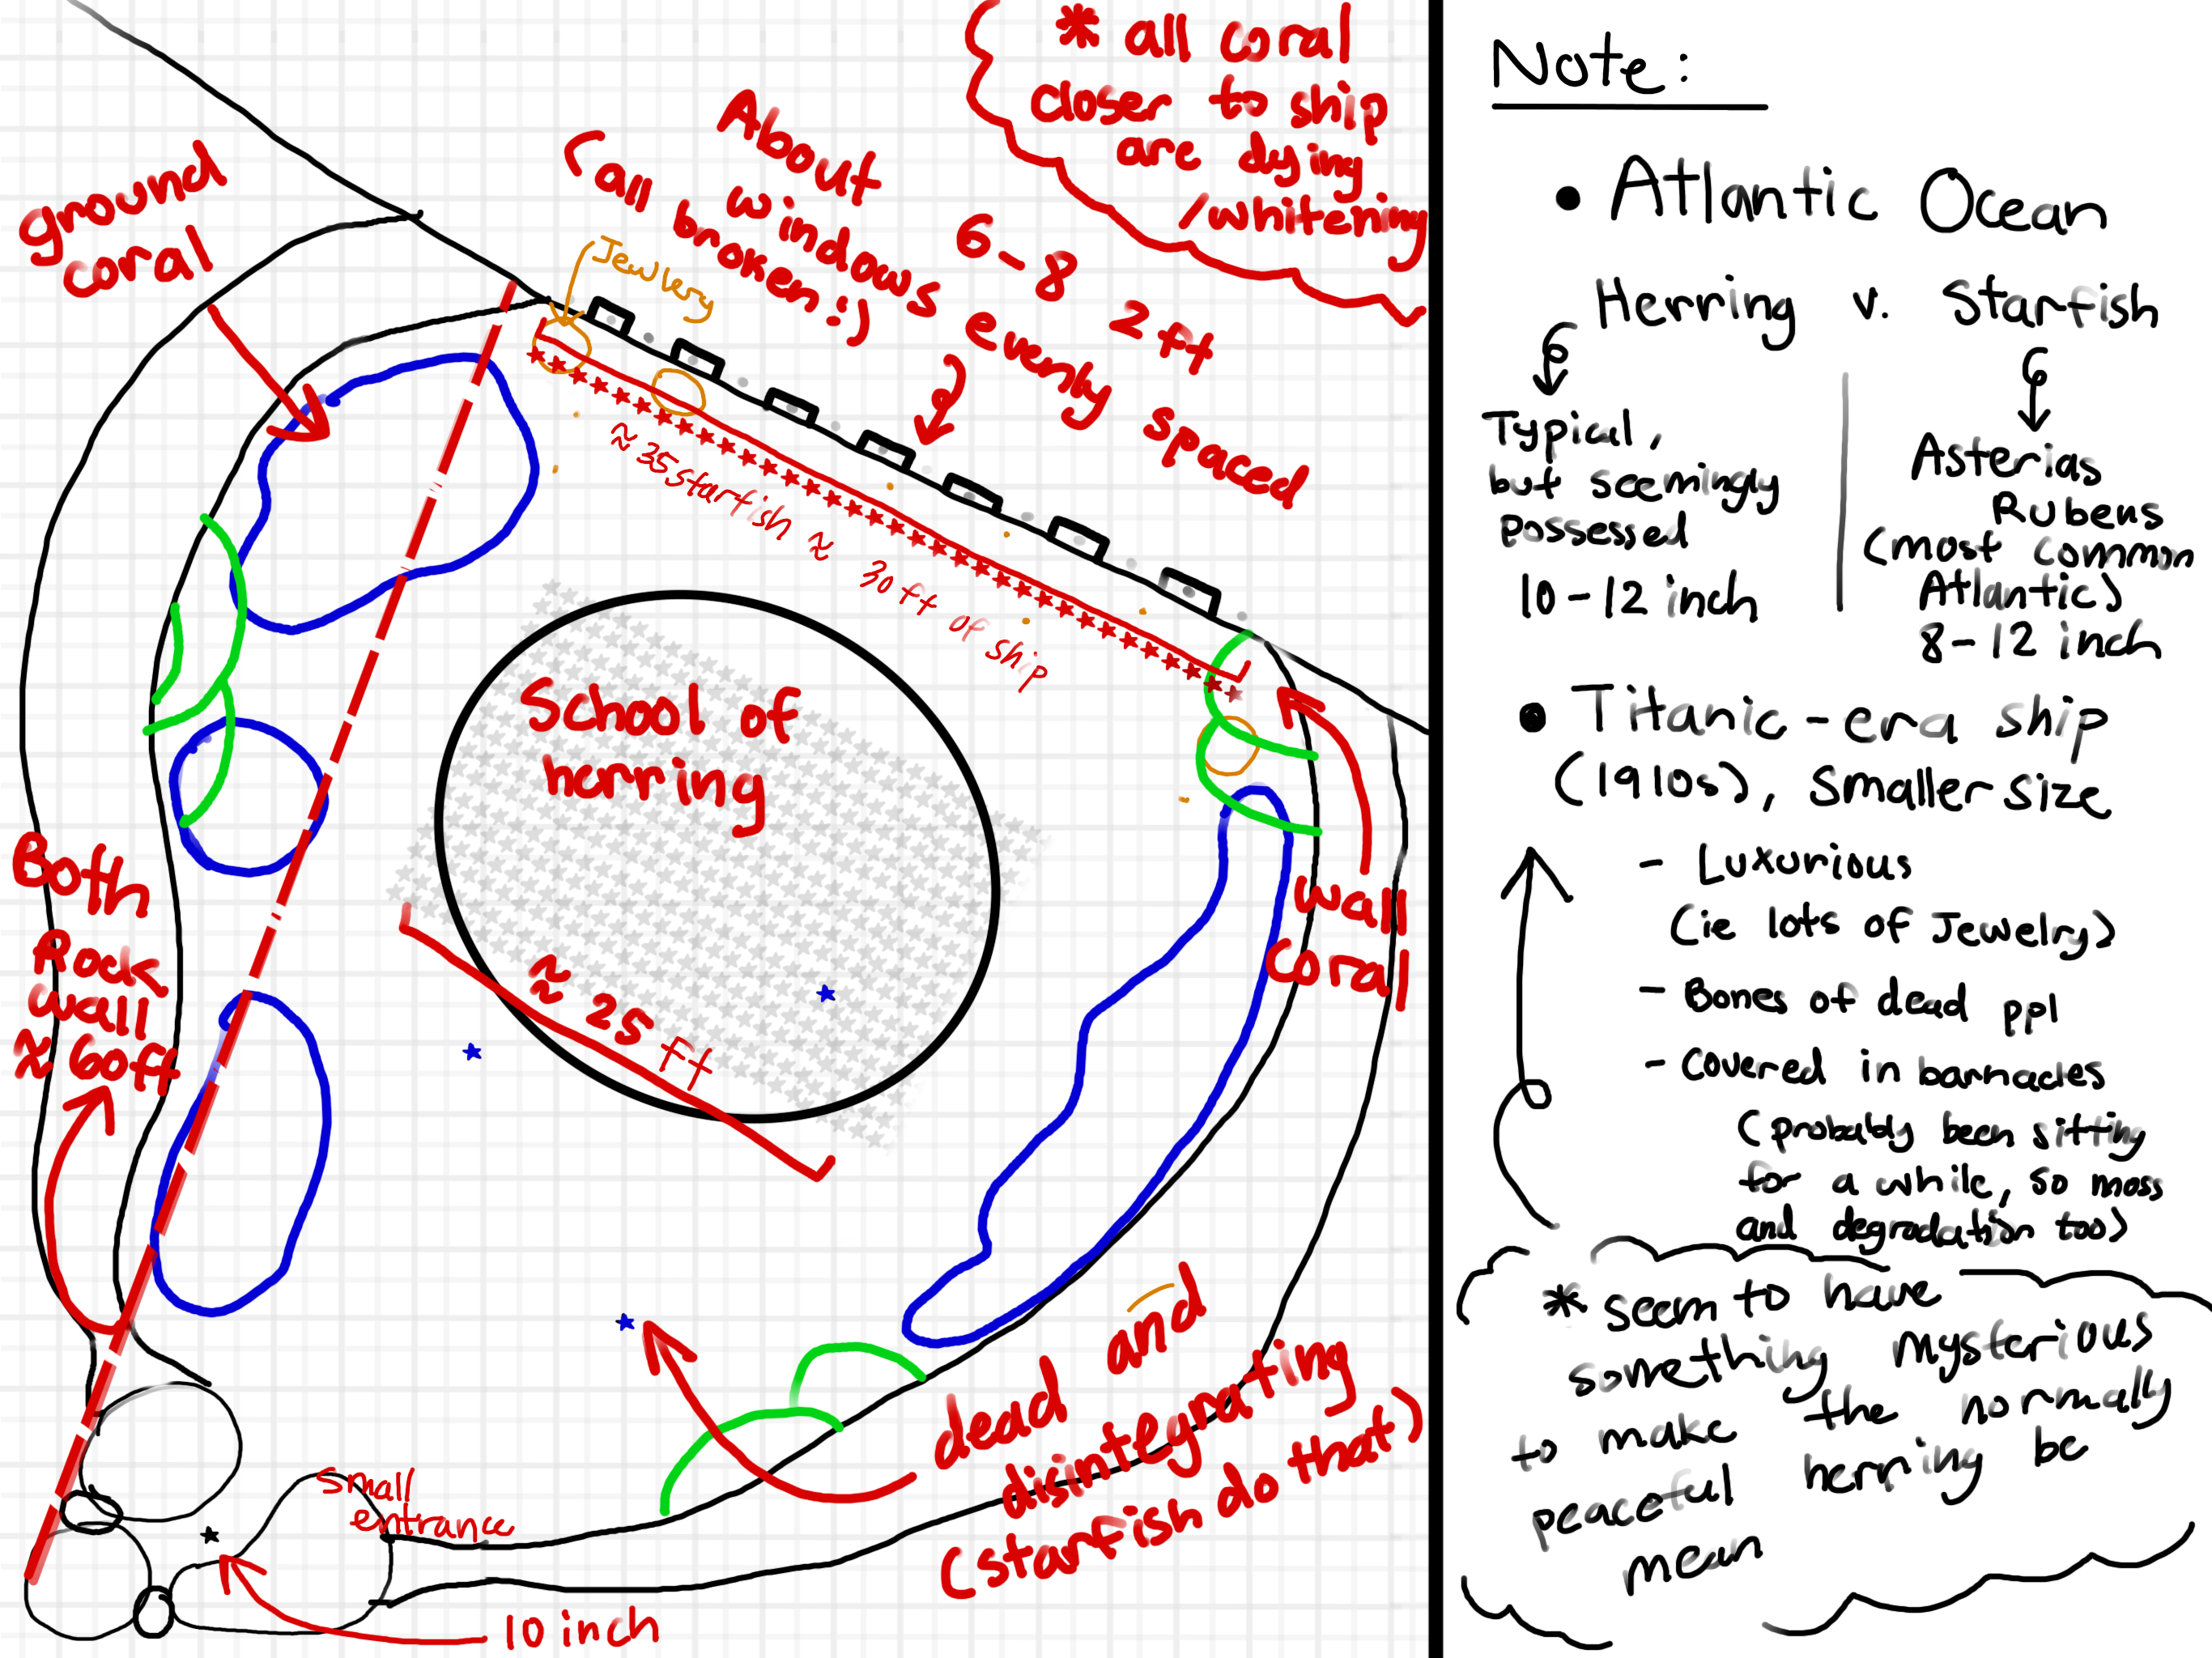 * all coral
closer to ship
are dying
/whitening
About 6-8 2ft
windows evenly spaced
(all broken :))
ground
coral
Jewlery
≈ 35 starfish ≈ 30ft of ship
School of
herring
Both
Rock
wall
≈ 60ft
≈ 25 ft
wall
coral
dead and
disintegrating
(starfish do that)
small
entrance
10 inch
Note:
• Atlantic Ocean
Herring v. Starfish
Typical,
but seemingly
possessed
10-12 inch
Asterias
Rubens
(most common
Atlantic)
8-12 inch
• Titanic-era ship
(1910s), smaller size
- Luxurious
(ie lots of Jewelry)
- Bones of dead ppl
- covered in barnacles
(probably been sitting
for a while, so moss
and degradation too)
* seem to have
something mysterious
to make the normally
peaceful herring be
mean